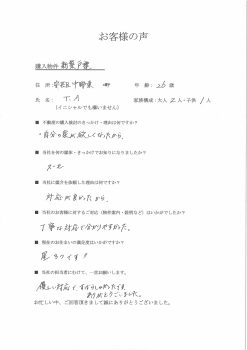 お客様の声
購入物件 新築戸建
住 所：安佐区中野東 町 年 齢：26歳
氏 名： T.A 家族構成：大人 2人・子供 1人
(イニシャルでも構いません)
■ 不動産の購入検討のきっかけ・理由は何ですか？
・自分の家が欲しくなったから。
■ 当社を何の媒体・きっかけでお知りになりましたか？
スーモ
■ 当社に仲介を依頼した理由は何ですか？
対応が良かったから
■ 当社のお客様に対するご対応（物件案内・説明など）はいかがでしたか？
丁寧な対応で分かりやすかった。
■ 現在のお住まいの満足度はいかがですか？
■ 当社の担当者にむけて、一言お願いします。
優しい対応で、すばらしかったです。
ありがとうございました。
お忙しい中、ご回答頂きまして誠にありがとうございました。